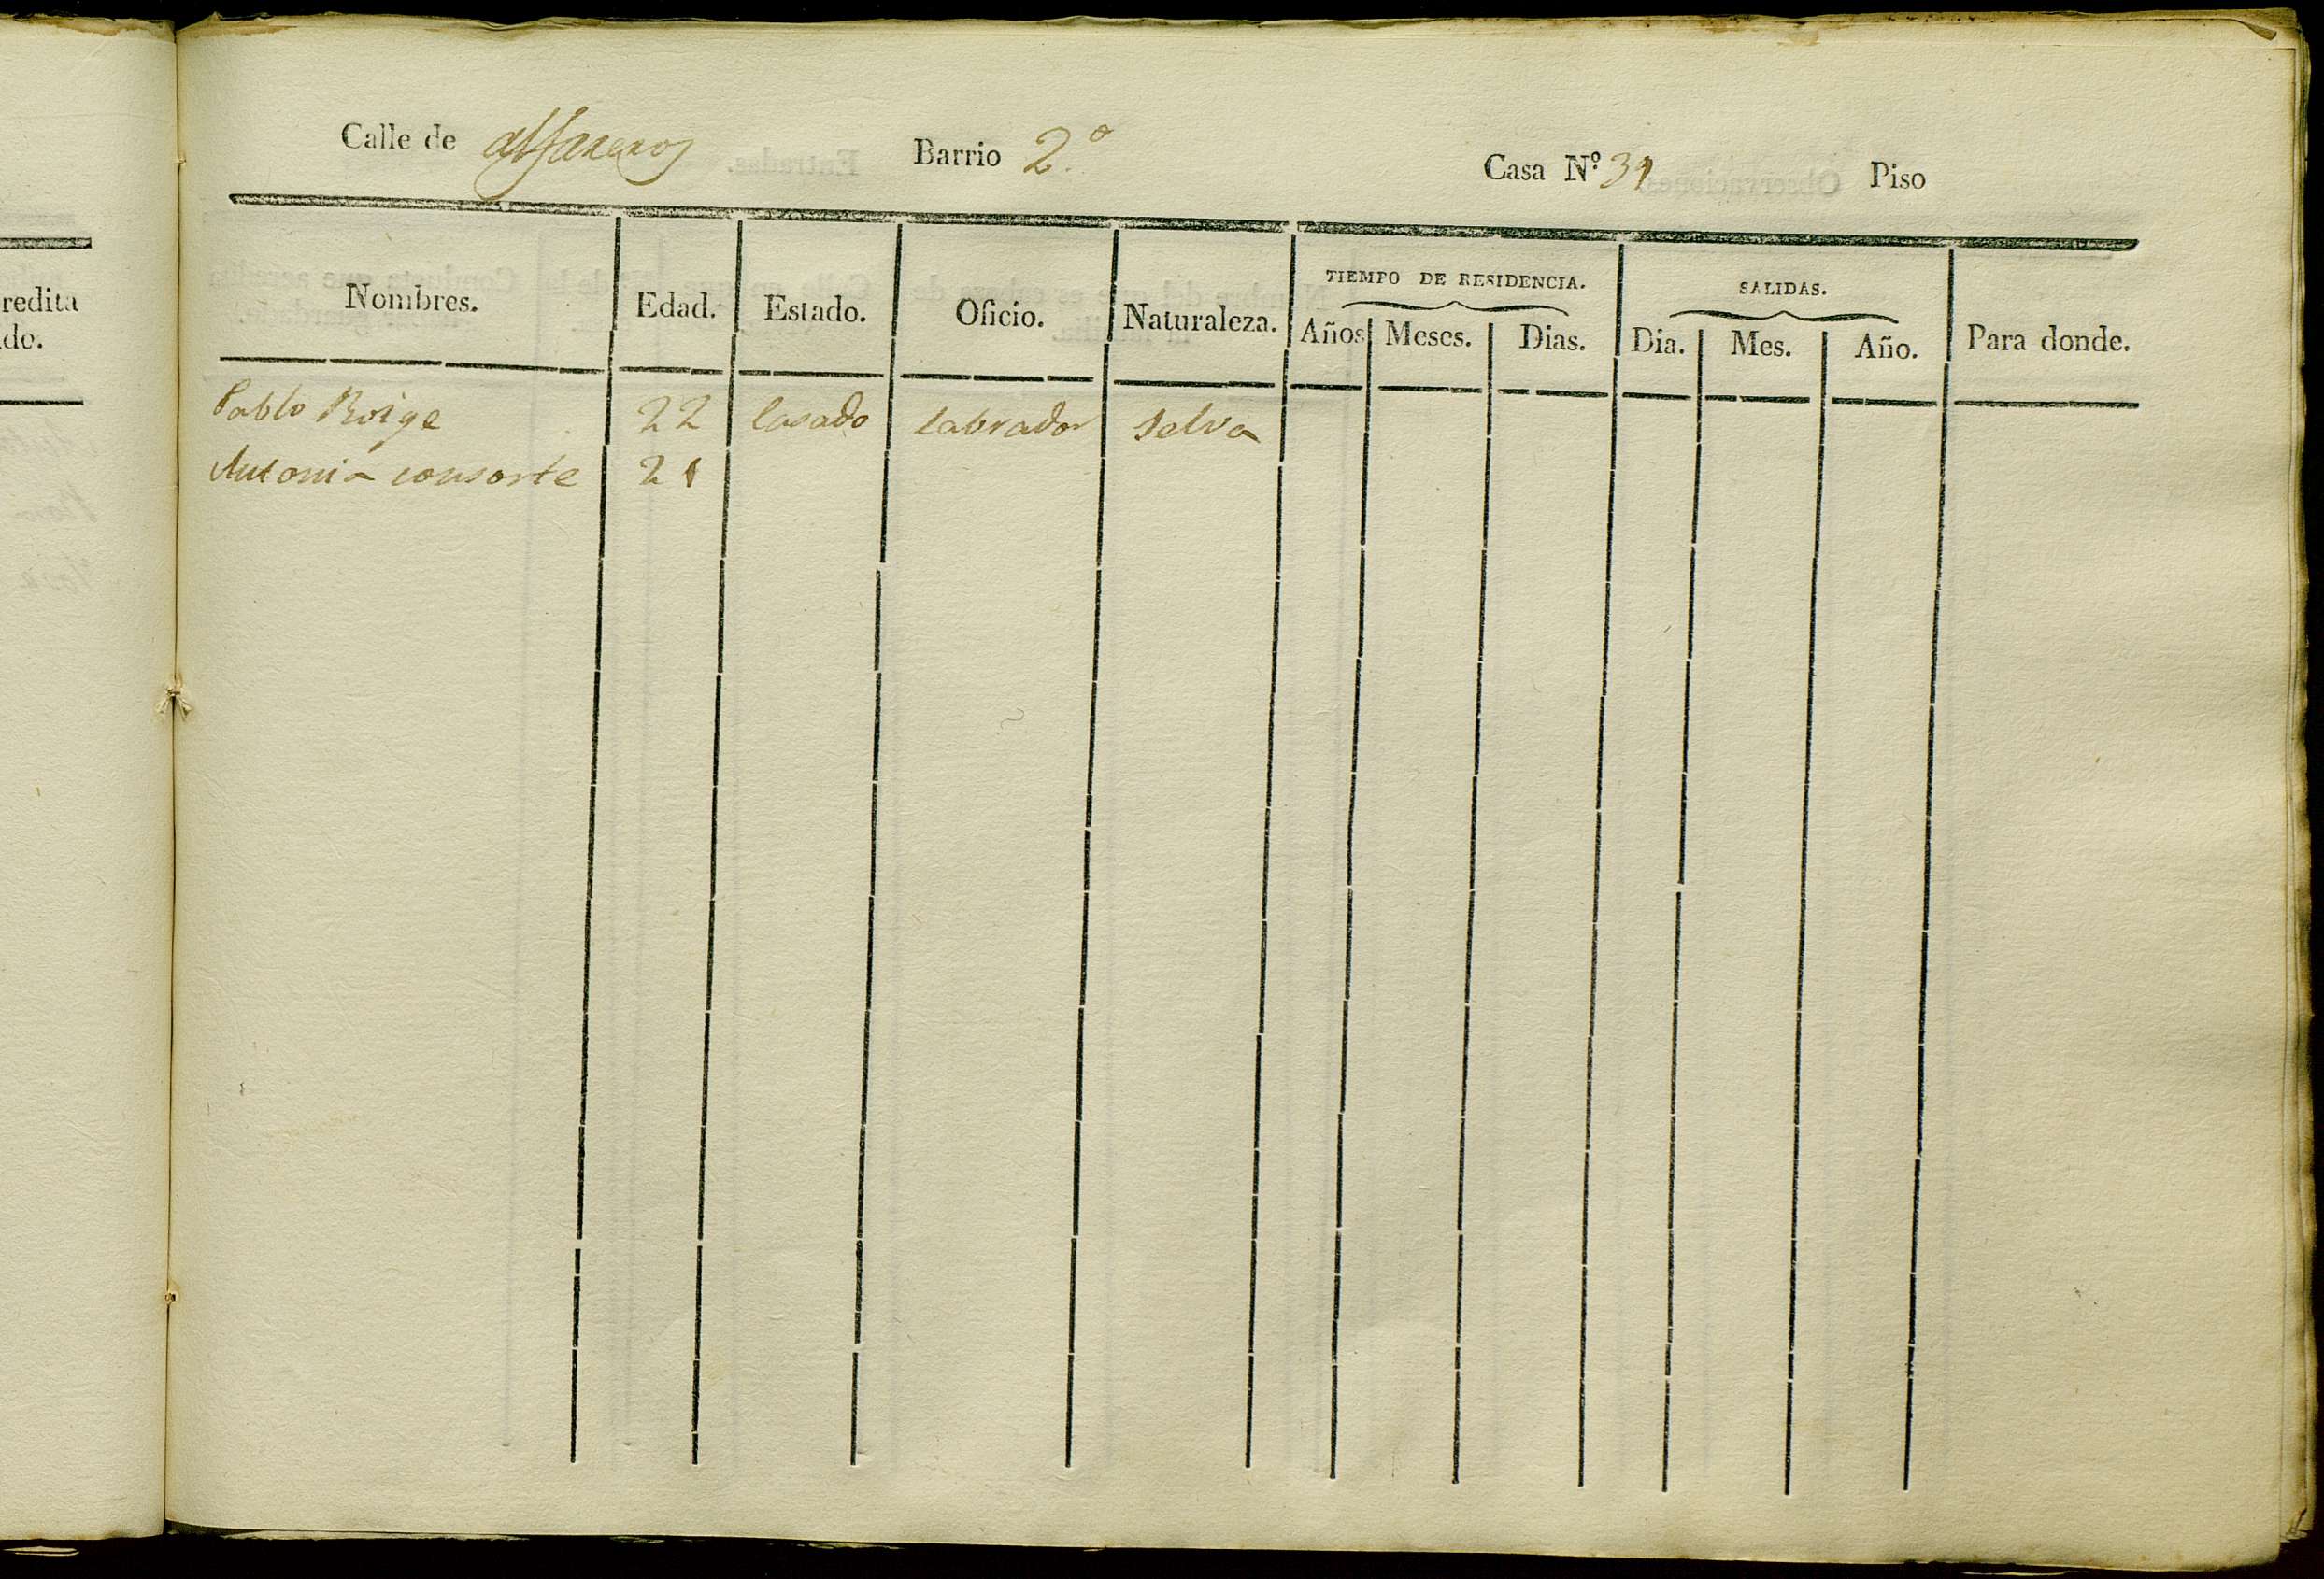 redita
do.
Calle de alfareros Barrio 2.º Casa N.º Piso
Nombres. Edad. Estado. Oficio. Naturaleza. TIEMPO DE RESIDENCIA. SALIDAS. Para donde.
Años Meses. Dias. Dia. Mes. Año.
Pablo Roige 22 Casado labrador Selva
Antonia consorte 21